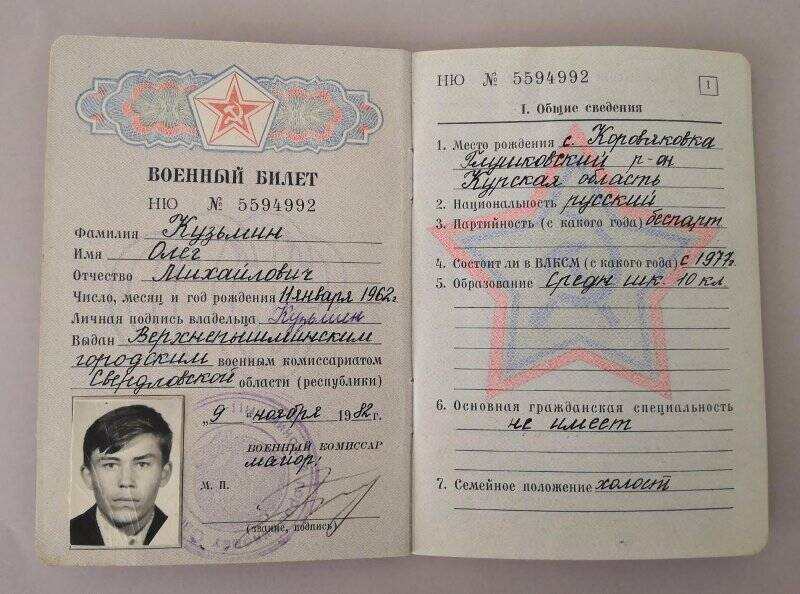 ВОЕННЫЙ БИЛЕТ
НЮ № 5594992
Фамилия Кузьмин
Имя Олег
Отчество Михайлович
Число, месяц и год рождения 11 января 1962 г.
Личная подпись владельца Кузьмин
Выдан Верхнепышминским
городским военным комиссариатом
Свердловской области (республики)
„9 ноября 1982 г.
ВОЕННЫЙ КОМИССАР
майор:
М. П.
(звание, подпись)
НЮ № 5594992
1
I. Общие сведения
1. Место рождения с. Коровяковка
Глушковский р-он
Курская область
2. Национальность русский
3. Партийность (с какого года) беспарт
4. Состоит ли в ВЛКСМ (с какого года) с 1977г.
5. Образование средн шк. 10 кл.
6. Основная гражданская специальность
не имеет
7. Семейное положение холост